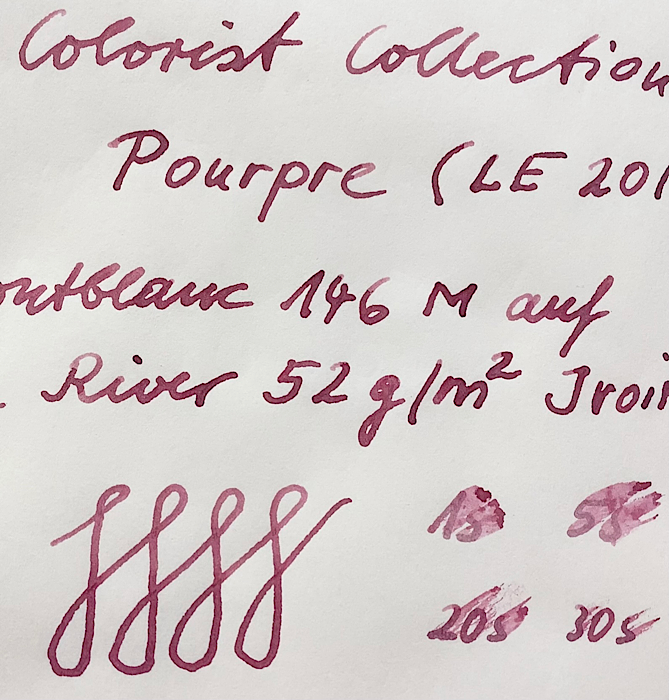 Colorist Collection
Pourpre (LE 201
ontblanc 146 M auf
. River 52 g/m² Jroi
1s 5s
20s 30s